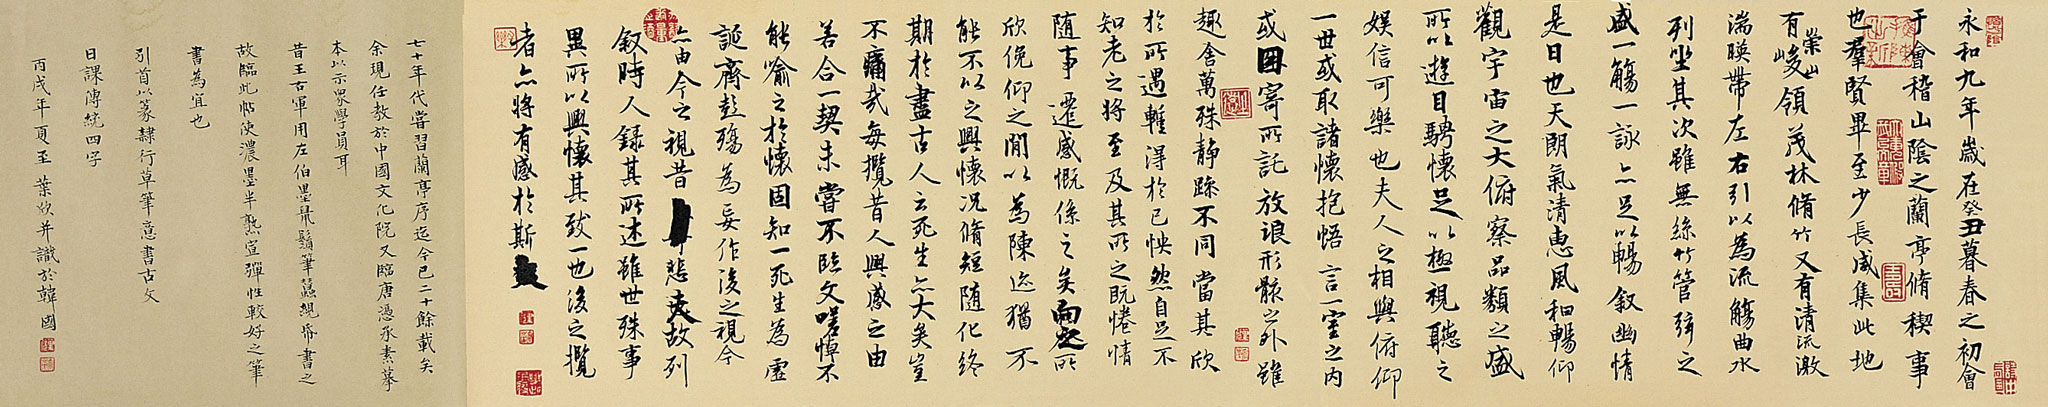 永和九年歲在癸丑暮春之初會
于會稽山陰之蘭亭脩稧事
也羣賢畢至少長咸集此地
有崇山峻領茂林脩竹又有清流激
湍暎帶左右引以為流觴曲水
列坐其次雖無絲竹管弦之
盛一觴一詠亦足以暢敘幽情
是日也天朗氣清惠風和暢仰
觀宇宙之大俯察品類之盛
所以遊目騁懷足以極視聽之
娛信可樂也夫人之相與俯仰
一世或取諸懷抱悟言一室之內
或因寄所託放浪形骸之外雖
趣舍萬殊靜躁不同當其欣
於所遇暫得於己怏然自足不
知老之將至及其所之既惓情
隨事遷感慨係之矣向之所
欣俛仰之閒以為陳迹猶不
能不以之興懷況脩短隨化終
期於盡古人云死生亦大矣豈
不痛哉每攬昔人興感之由
若合一契未嘗不臨文嗟悼不
能喻之於懷固知一死生為虛
誕齊彭殤為妄作後之視今
亦由今之視昔悲夫故列
敘時人錄其所述雖世殊事
異所以興懷其致一也後之攬
者亦將有感於斯文
七十年代嘗習蘭亭序迄今已二十餘載矣
余現任教於中國文化院又臨唐馮承素摹
本以示眾學員耳
昔王右軍用左伯墨鼠鬚筆蠶絸帋書之
故臨此帖使濃墨半熟宣彈性較好之筆
書為宜也
引首以篆隸行草筆意書古文
日課傳統四字
丙戌年夏至葉欣并識於韓國